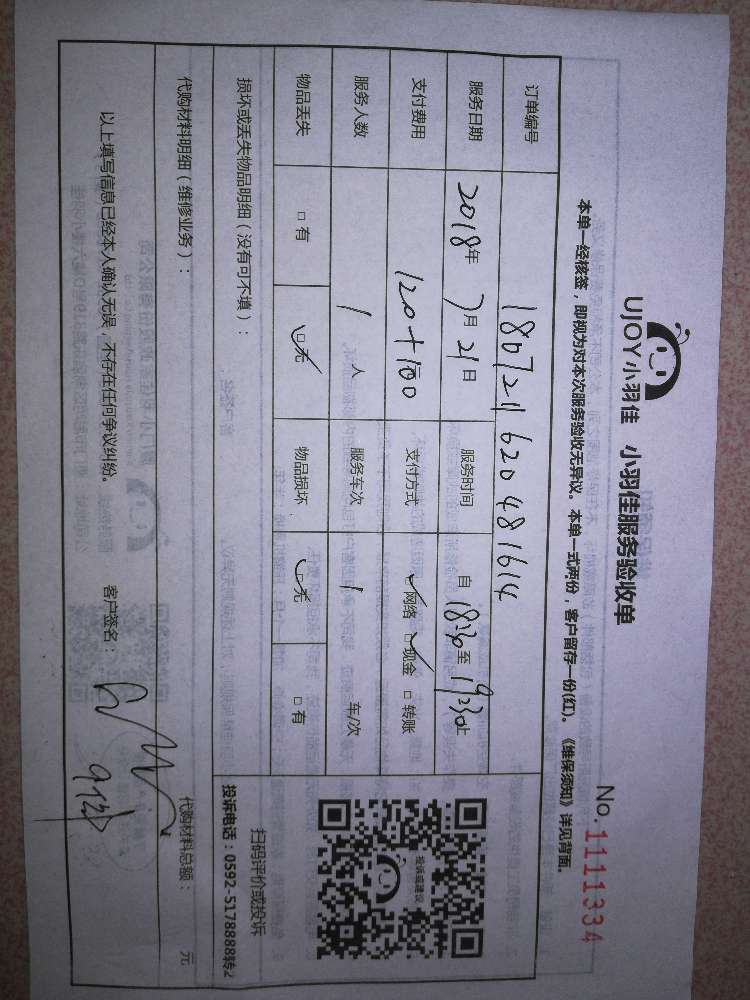 UJOY小羽佳 小羽佳服务验收单
No.1111334
本单一经核签，即视为对本次服务验收无异议。本单一式两份，客户留存一份(红)。《维保须知》详见背面。
订单编号 180721620481614
服务日期 2018年7月21日 服务时间 自18:30至19:30止
支付费用 120+100 支付方式 ☑网络 ☑现金 □转账
服务人数 1人 服务车次 1车/次
物品丢失 □有 ☑无 物品损坏 ☑无 □有
投诉或建议
扫码评价或投诉
投诉电话：0592-5178888转2
损坏或丢失物品明细（没有可不填）：
代购材料明细（维修业务）： 代购材料总额： 元
以上填写信息已经本人确认无误，不存在任何争议纠纷。 客户签名：